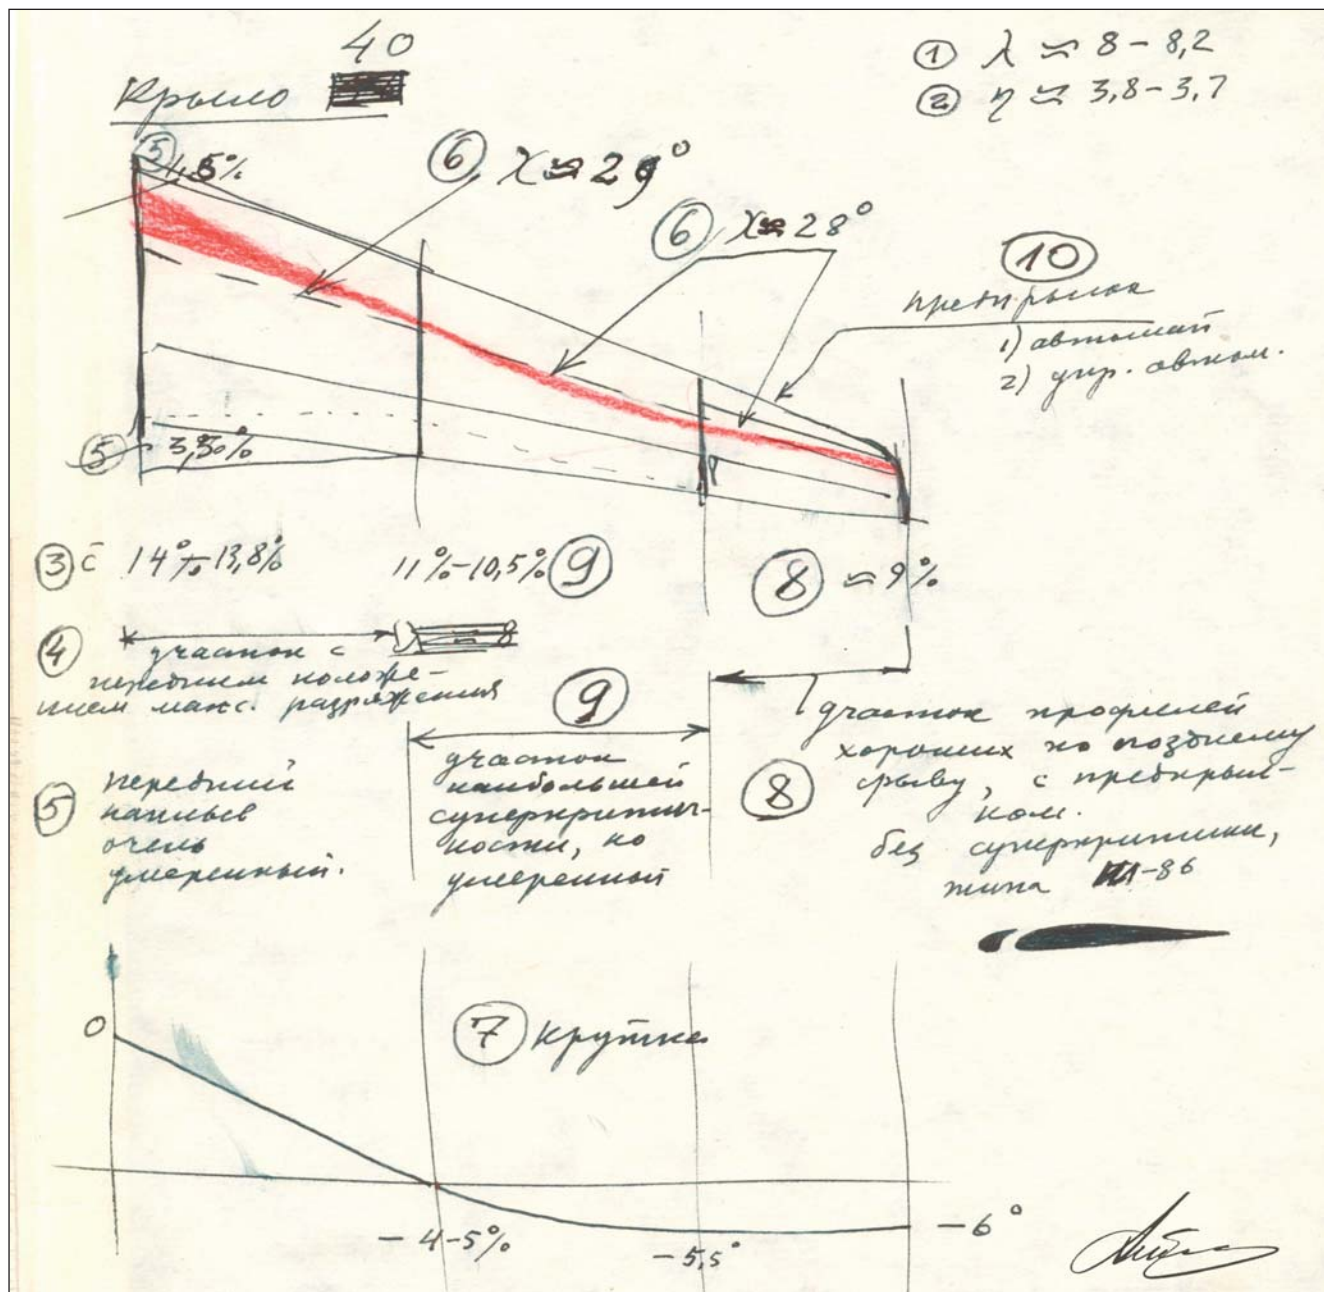 40
Крыло
① λ ≈ 8-8,2
② η ≈ 3,8-3,7
⑤ 1,5%
⑥ χ≈29°
⑥ χ≈28°
⑩
предкрылок
1) автомат
2) упр. автом.
⑤ 3,50%
③ c̄ 14%-13,8% 11%-10,5% ⑨
⑧ ≈ 9%
④ участок с
передним положе-
нием макс. разряжения
⑨
участок
наибольшей
суперкритич-
ности, но
умеренной
⑤ передний
наплыв
очень
умеренный.
участок профилей
хороших по позднему
⑧ срыву, с предкрыл-
ком.
без суперкритики,
типа Ил-86
0
⑦ крутка
-4-5%
-5,5°
-6°